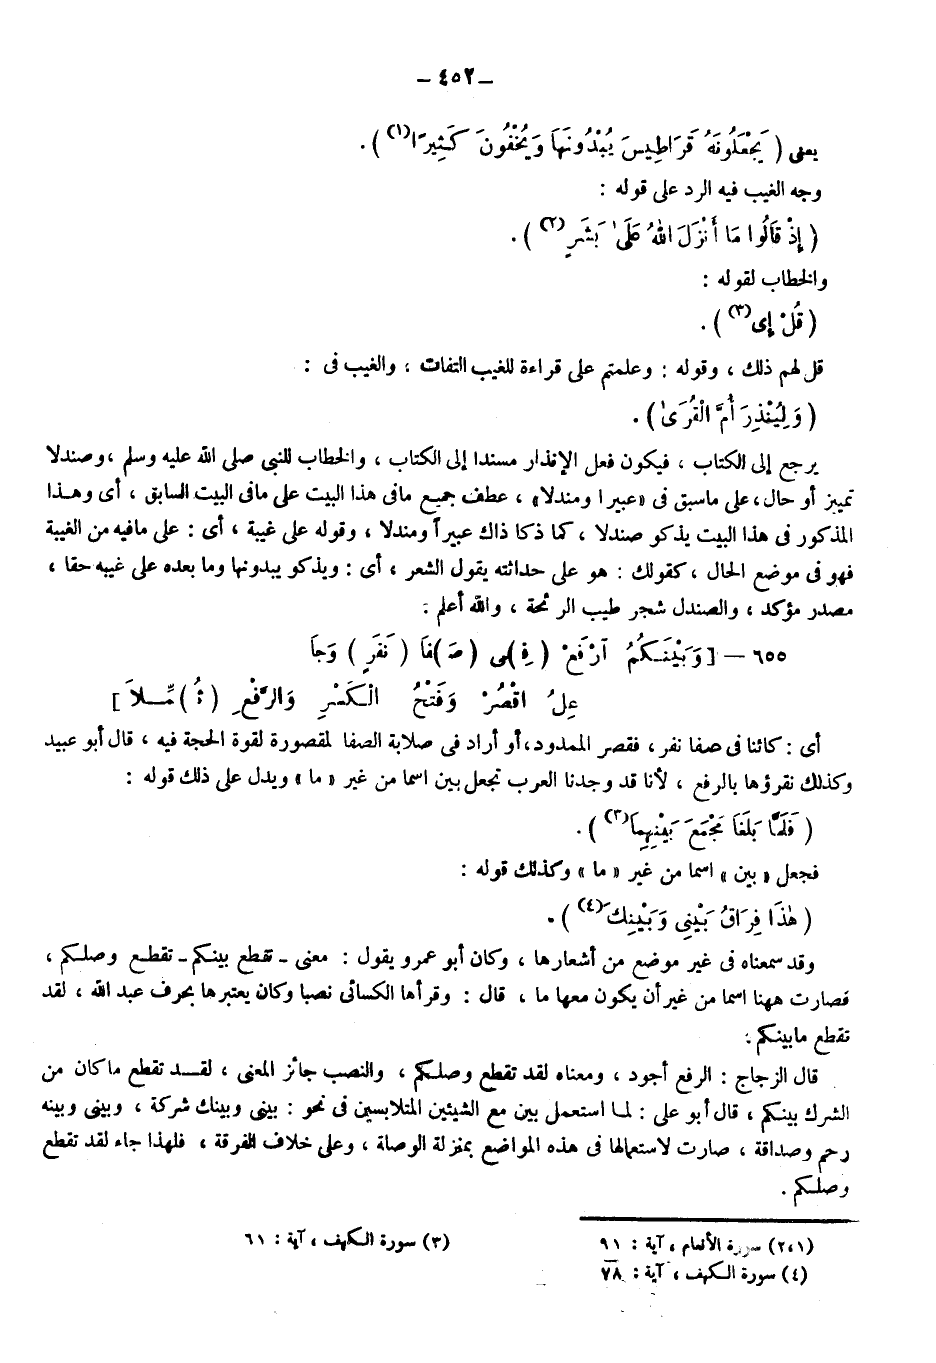 – ٤٥٢ –
يعنى ( يَجْعَلُونَهُ قَرَاطِيسَ يُبْدُونَهَا وَيُخْفُونَ كَثِيرًا(١) ) .
وجه الغيب فيه الرد على قوله :
( إِذْ قَالُوا مَا أَنْزَلَ اللهُ عَلَىٰ بَشَرٍ(٢) ) .
والخطاب لقوله :
( قُلْ إِى(٣) ) .
قل لهم ذلك ، وقوله : وعلمتم على قراءة للغيب التفات ، والغيب فى :
( وَلِيُنْذِرَ أُمَّ الْقُرَىٰ ) .
يرجع إلى الكتاب ، فيكون فعل الإنذار مسندا إلى الكتاب ، والخطاب للنبى صلى الله عليه وسلم ، وصندلا
تمييز أو حال ، على ماسبق فى «عبيرا ومندلا» ، عطف جميع مافى هذا البيت على مافى البيت السابق ، أى وهذا
المذكور فى هذا البيت يذكو صندلا ، كما ذكا ذاك عبيراً ومندلا ، وقوله على غيبة ، أى : على مافيه من الغيبة
فهو فى موضع الحال ، كقولك : هو على حداثته يقول الشعر ، أى : ويذكو يبدونها وما بعده على غيبه حقا ،
مصدر مؤكد ، والصندل شجر طيب الرئحة ، والله أعلم .
٦٥٥ – [ وَبَيْنَكُمُ ٱرْفَعْ (فِـ)ـى (صَـ)ـفَا (نَفَرٍ) وَجَا
عِلُ اقْصُرْ وَفَتْحُ الْكَسْرِ وَالرَّفْعِ (ثُـ)ـمِّـلاَ ]
أى : كائنا فى صفا نفر ، فقصر الممدود ، أو أراد فى صلابة الصفا المقصورة لقوة الحجة فيه ، قال أبو عبيد
وكذلك نقرؤها بالرفع ، لأنا قد وجدنا العرب تجعل بين اسما من غير « ما » ويدل على ذلك قوله :
( فَلَمَّا بَلَغَا مَجْمَعَ بَيْنِهِمَا(٣) ) .
فجعل « بين » اسما من غير « ما » وكذلك قوله :
( هٰذَا فِرَاقُ بَيْنِى وَبَيْنِكَ(٤) ) .
وقد سمعناه فى غير موضع من أشعارها ، وكان أبو عمرو يقول : معنى – تقطع بينكم – تقطع وصلكم ،
فصارت ههنا اسما من غير أن يكون معها ما ، قال : وقرأها الكسائى نصبا وكان يعتبرها بحرف عبد الله ، لقد
تقطع مابينكم .
قال الزجاج : الرفع أجود ، ومعناه لقد تقطع وصلكم ، والنصب جائز المعنى ، لقد تقطع ماكان من
الشرك بينكم ، قال أبو على : لما استعمل بين مع الشيئين المتلابسين فى نحو : بينى وبينك شركة ، وبينى وبينه
رحم وصداقة ، صارت لاستعمالها فى هذه المواضع بمنزلة الوصلة ، وعلى خلاف الفرقة ، فلهذا جاء لقد تقطع
وصلكم .
(٢،١) سورة الأنعام ، آية : ٩١
(٣) سورة الكهف ، آية : ٦١
(٤) سورة الكهف ، آية : ٧٨